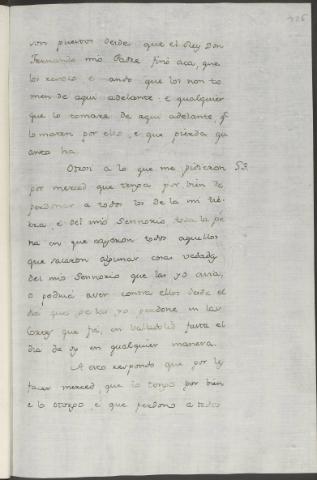 sos puestos desde que el Rey Don
Fernando mio Padre finó aca, que
los revoco e mando que los non to
men de aqui adelante e qualquier
que lo tomare de aqui adelante, q.
lo maten por ello, e que pierda qu
anto ha.
Otrosi a lo que me pidieron 53.
por merced que tenga por bien de
perdonar a todos los de la mi tie
rra, e del mio Sennorio toda la pe
na en que cayeron todos aquellos
que sacaron algunas cosas vedadas
del mio Sennorio que las yo avia,
o podria aver contra ellos desde el
dia que gelas yo perdone en las
Cortes que fiz, en Valladolid fasta el
dia de oy en qualquier manera.
A esto respondo que por les
facer merced, que lo tengo por bien
e lo otorgo, e que perdono a todos